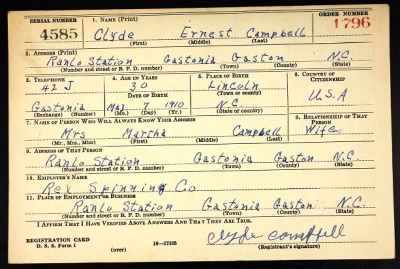 SERIAL NUMBER 1. NAME (Print) ORDER NUMBER
4585 Clyde Ernest Campbell 1796
(First) (Middle) (Last)
2. ADDRESS (Print)
Ranlo Station Gastonia Gaston N.C.
(Number and street or R. F. D. number) (Town) (County) (State)
3. TELEPHONE 4. AGE IN YEARS 5. PLACE OF BIRTH 6. COUNTRY OF CITIZENSHIP
42 J 30 Lincoln
DATE OF BIRTH (Town or county)
Gastonia 7 1910 N.C. U.S.A
(Exchange) (Number) (Mo.) (Day) (Yr.) (State or country)
7. NAME OF PERSON WHO WILL ALWAYS KNOW YOUR ADDRESS 8. RELATIONSHIP OF THAT PERSON
Mrs Martha Campbell Wife
(Mr., Mrs., Miss) (First) (Middle) (Last)
9. ADDRESS OF THAT PERSON
Ranlo Station Gastonia Gaston N.C.
(Number and street or R. F. D. number) (Town) (County) (State)
10. EMPLOYER'S NAME
Rex Spinning Co
11. PLACE OF EMPLOYMENT OR BUSINESS
Ranlo Station Gastonia Gaston N.C.
(Number and street or R. F. D. number) (Town) (County) (State)
I AFFIRM THAT I HAVE VERIFIED ABOVE ANSWERS AND THAT THEY ARE TRUE.
REGISTRATION CARD Clyde Campbell
D. S. S. Form 1 (over) 16—17105 (Registrant's signature)